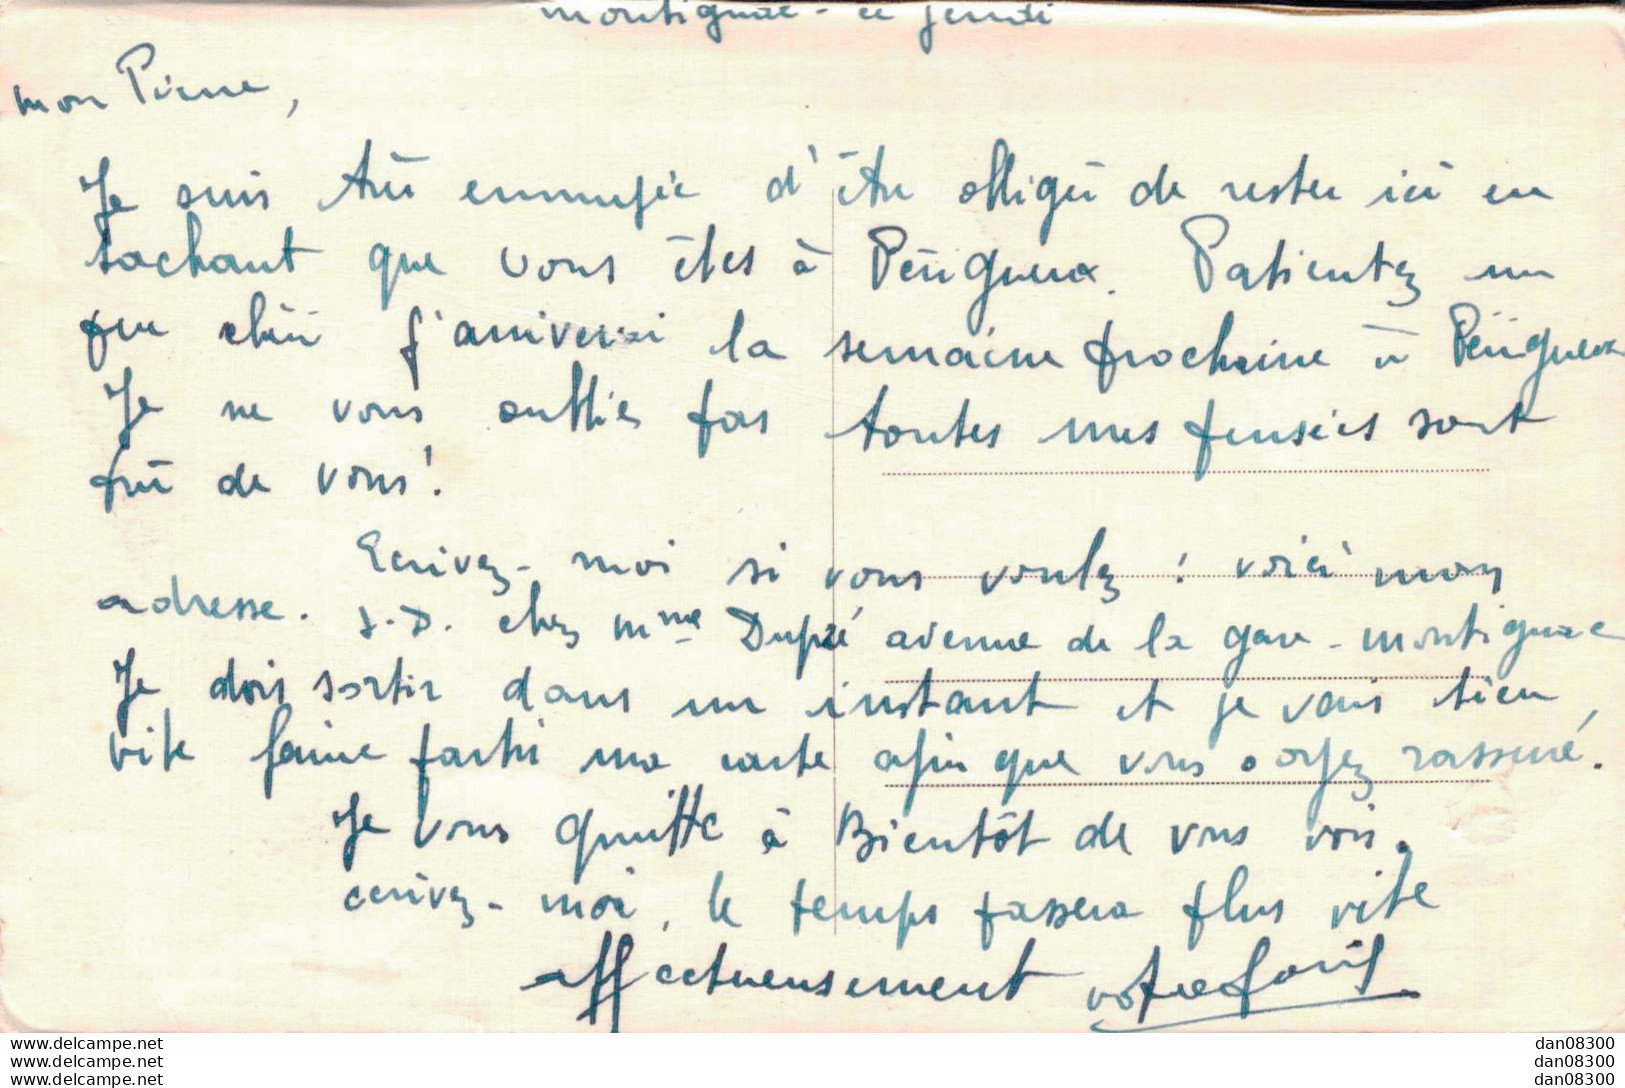 Montignac - ce jeudi
Mon Pierre,
Je suis très ennuyée d'être obligée de rester ici en
sachant que vous êtes à Périgueux. Patientez un
peu chéri j'arriverai la semaine prochaine à Périgueux
Je ne vous oublie pas toutes mes pensées sont
près de vous!
Ecrivez-moi si vous voulez ! voici mon
adresse. J.D. chez Mme Dupré avenue de la gare - Montignac
Je dois sortir dans un instant et je vais bien
vite faire partir ma carte afin que vous soyez rassuré.
Je vous quitte à Bientôt de vous voir.
écrivez-moi, le temps passera plus vite
affectueusement votre
www.delcampe.net
www.delcampe.net
www.delcampe.net
dan08300
dan08300
dan08300